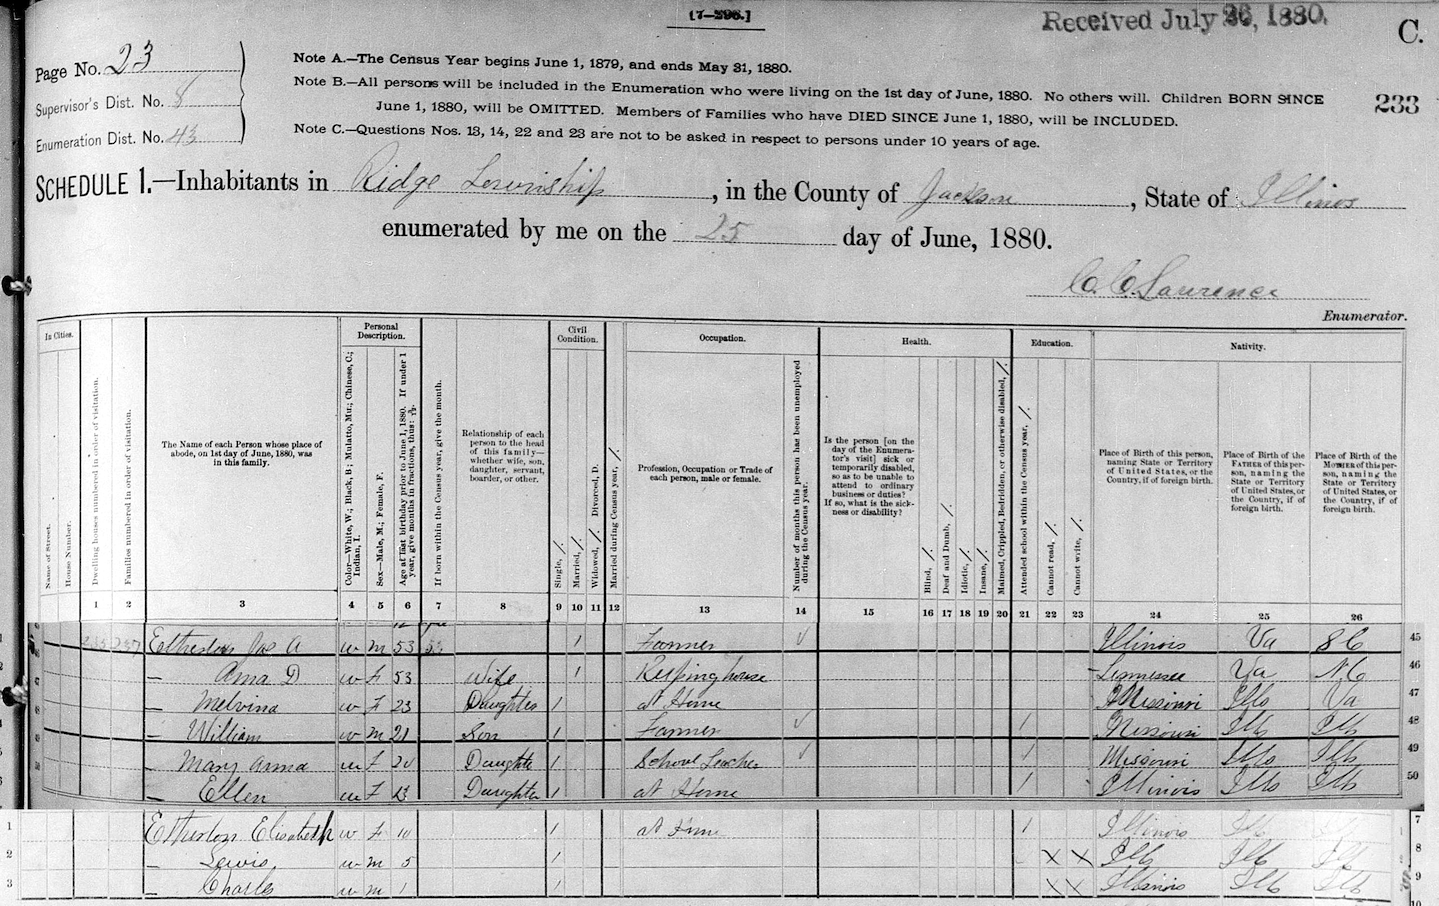 [7-296.]
Received July 26, 1880.
C.
Page No. 23
Supervisor's Dist. No. 8
Enumeration Dist. No. 43
Note A.—The Census Year begins June 1, 1879, and ends May 31, 1880.
Note B.—All persons will be included in the Enumeration who were living on the 1st day of June, 1880. No others will. Children BORN SINCE
June 1, 1880, will be OMITTED. Members of Families who have DIED SINCE June 1, 1880, will be INCLUDED.
Note C.—Questions Nos. 13, 14, 22 and 23 are not to be asked in respect to persons under 10 years of age.
233
SCHEDULE 1.—Inhabitants in Ridge Township, in the County of Jackson, State of Illinois
enumerated by me on the 25 day of June, 1880.
C. C. Lawrence
Enumerator.
In Cities.
Name of Street.
House Number.
Dwelling houses numbered in order of visitation.
Families numbered in order of visitation.
The Name of each Person whose place of
abode, on 1st day of June, 1880, was
in this family.
Personal
Description.
Color—White, W.; Black, B.; Mulatto, Mu.; Chinese, C.;
Indian, I.
Sex—Male, M.; Female, F.
Age at last birthday prior to June 1, 1880. If under 1
year, give months in fractions, thus: 3/12.
If born within the Census year, give the month.
Relationship of each
person to the head
of this family—
whether wife, son,
daughter, servant,
boarder, or other.
Civil
Condition.
Single, /.
Married, /.
Widowed, /. Divorced, D.
Married during Census year, /.
Occupation.
Profession, Occupation or Trade of
each person, male or female.
Number of months this person has been unemployed
during the Census year.
Health.
Is the person [on the
day of the Enumera-
tor's visit] sick or
temporarily disabled,
so as to be unable to
attend to ordinary
business or duties?
If so, what is the sick-
ness or disability?
Blind, /.
Deaf and Dumb, /.
Idiotic, /.
Insane, /.
Maimed, Crippled, Bedridden, or otherwise disabled, /.
Education.
Attended school within the Census year, /.
Cannot read, /.
Cannot write, /.
Nativity.
Place of Birth of this person,
naming State or Territory
of United States, or the
Country, if of foreign birth.
Place of Birth of the
FATHER of this per-
son, naming the
State or Territory
of United States, or
the Country, if of
foreign birth.
Place of Birth of the
MOTHER of this per-
son, naming the
State or Territory
of United States, or
the Country, if of
foreign birth.
1 2 3 4 5 6 7 8 9 10 11 12 13 14 15 16 17 18 19 20 21 22 23 24 25 26
237 Etherton Jas A W M 53 1 Farmer Illinois Va S C 45
— Ama D W F 53 Wife 1 Keeping house Tennessee Va N.C 46
— Melvina W F 23 Daughter 1 at Home Missouri Ills Va 47
— William W M 21 Son 1 Farmer 1 Missouri Ills Ills 48
— Mary Anna W F 20 Daughte 1 School Teacher 1 Missouri Ills Ills 49
— Ellen W F 13 Daughter 1 at Home 1 Illinois Ills Ills 50
1 Etherton Elisabeth W F 10 1 at Home 1 Illinois 7
2 — Lewis W M 5 1 X X Ills Ills Ills 8
3 — Charls W M 1 1 X X Illinois Ills Ills 9
10